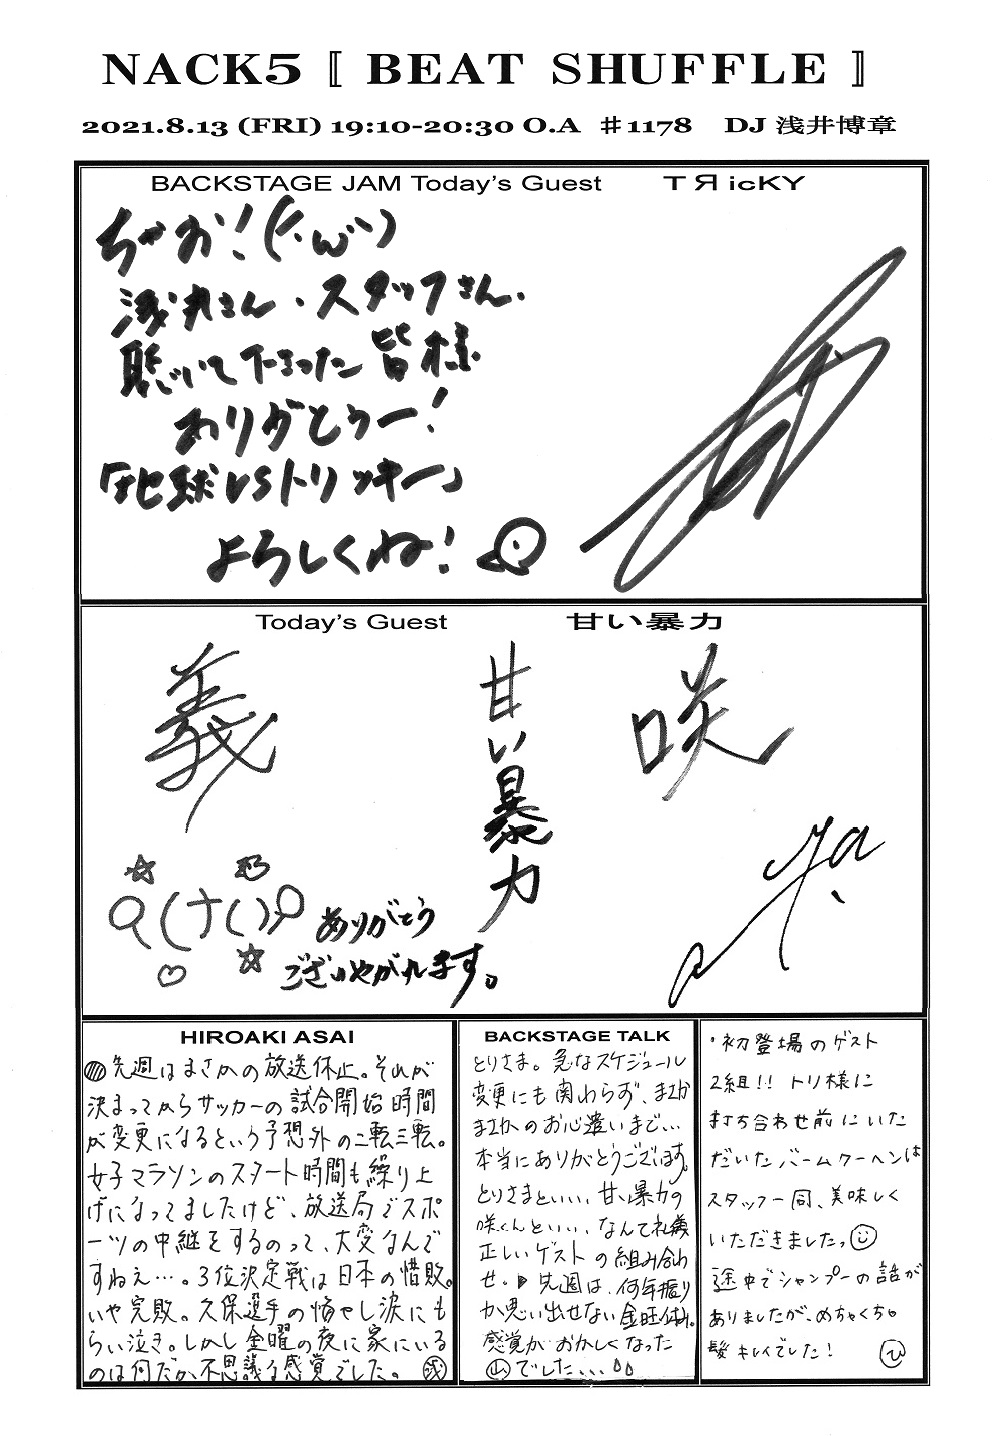 NACK5 〚 BEAT SHUFFLE 〛
2021.8.13 (FRI) 19:10-20:30 O.A ♯1178 DJ 浅井博章
BACKSTAGE JAM Today's Guest TЯicKY
ちゃお!
浅井さん・スタッフさん、
聴いて下さった皆様
ありがとうー!
「地球VSトリッキー」
よろしくね!
Today's Guest 甘い暴力
義
甘い暴力
咲
ありがとう
ございやがれます。
HIROAKI ASAI
先週はまさかの放送休止。それが
決まってからサッカーの試合開始時間
が変更になるという予想外の二転三転。
女子マラソンのスタート時間も繰り上
げになってましたけど、放送局でスポ
ーツの中継をするのって、大変なんで
すねえ…。3位決定戦は日本の惜敗。
いや完敗。久保選手の悔やし涙にも
らい泣き。しかし金曜の夜に家にいる
のは何だか不思議な感覚でした。 浅
BACKSTAGE TALK
とりさま。急なスケジュール
変更にも関わらず、まさか
まさかのお心遣いまで…
本当にありがとうございます。
とりさまといい、甘い暴力の
咲くんといい、なんて礼儀
正しいゲストの組み合わ
せ。先週は、何年振り
か思い出せない金旺休み。
感覚がおかしくなった
山でした...
・初登場のゲスト
2組!! トリ様に
打ち合わせ前にいた
だいたバームクーヘンは
スタッフ一同、美味しく
いただきましたっ
途中でシャンプーの話が
ありましたが、めちゃくちゃ
髪キレイでした! ひ